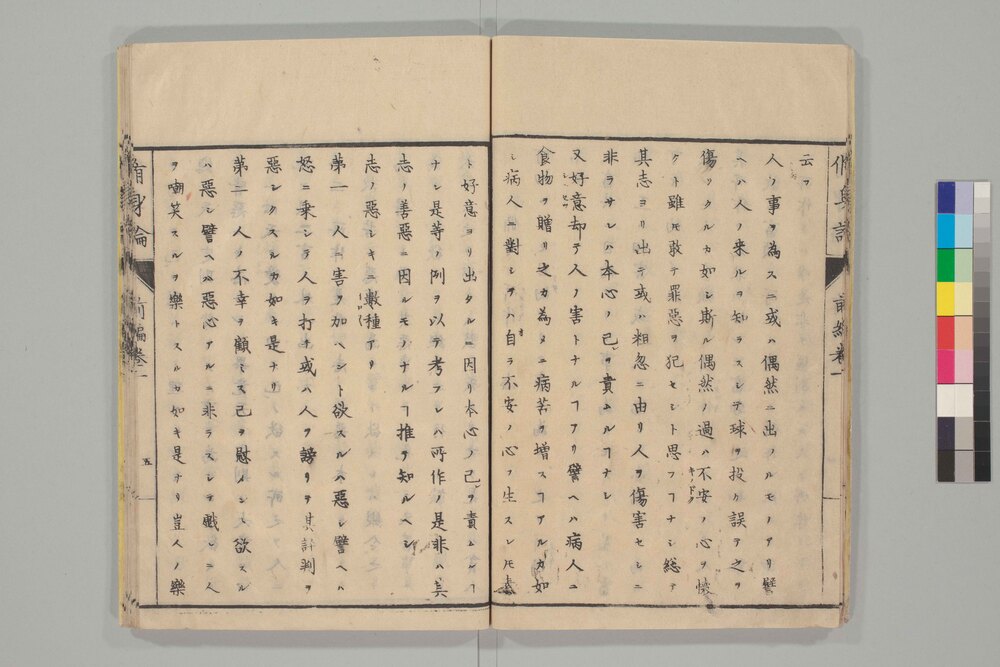 云フ
人ノ事ヲ為スニ或ハ偶然ニ出ツルモノアリ譬
ヘハ人ノ来ルヲ知ラスシテ球ヲ投ケ誤テ之ヲ
傷ツクルカ如シ斯ル偶然ノ過ハ不安ノ心ヲ懐
クト雖モ敢テ罪惡ヲ犯セシト思フヿナシ総テ
其志ヨリ出テ或ハ粗忽ニ由リ人ヲ傷害セシニ
非ラサレハ本心ノ己ヲ責ムルヿナシ
又好意却テ人ノ害トナルヿアリ譬ヘハ病人ニ
食物ヲ贈リ之カ為メニ病苦ヲ増スヿアルカ如
シ病人ニ對シテハ自ラ不安ノ心ヲ生スレトモ素
ト好意ヨリ出タルニ因リ本心ノ己ヲ責ムルヿ
ナシ是等ノ例ヲ以テ考フレハ所作ノ是非ハ其
志ノ善惡ニ因ルモノナルヿ推テ知ルヘシ
志ノ惡シキニ數種アリ
第一 人ニ害ヲ加ヘント欲スルハ惡シ譬ヘハ
怒ニ乗シテ人ヲ打チ或ハ人ヲ謗リテ其評判ヲ
惡シクスルカ如キ是ナリ
第二 人ノ不幸ヲ顧ミス己ヲ慰メント欲スル
ハ惡シ譬ヘハ惡心アルニ非ラスシテ戯レニ人
ヲ嘲笑スルヲ樂トスルカ如キ是ナリ豈人ノ樂
脩身論 前編巻一
五